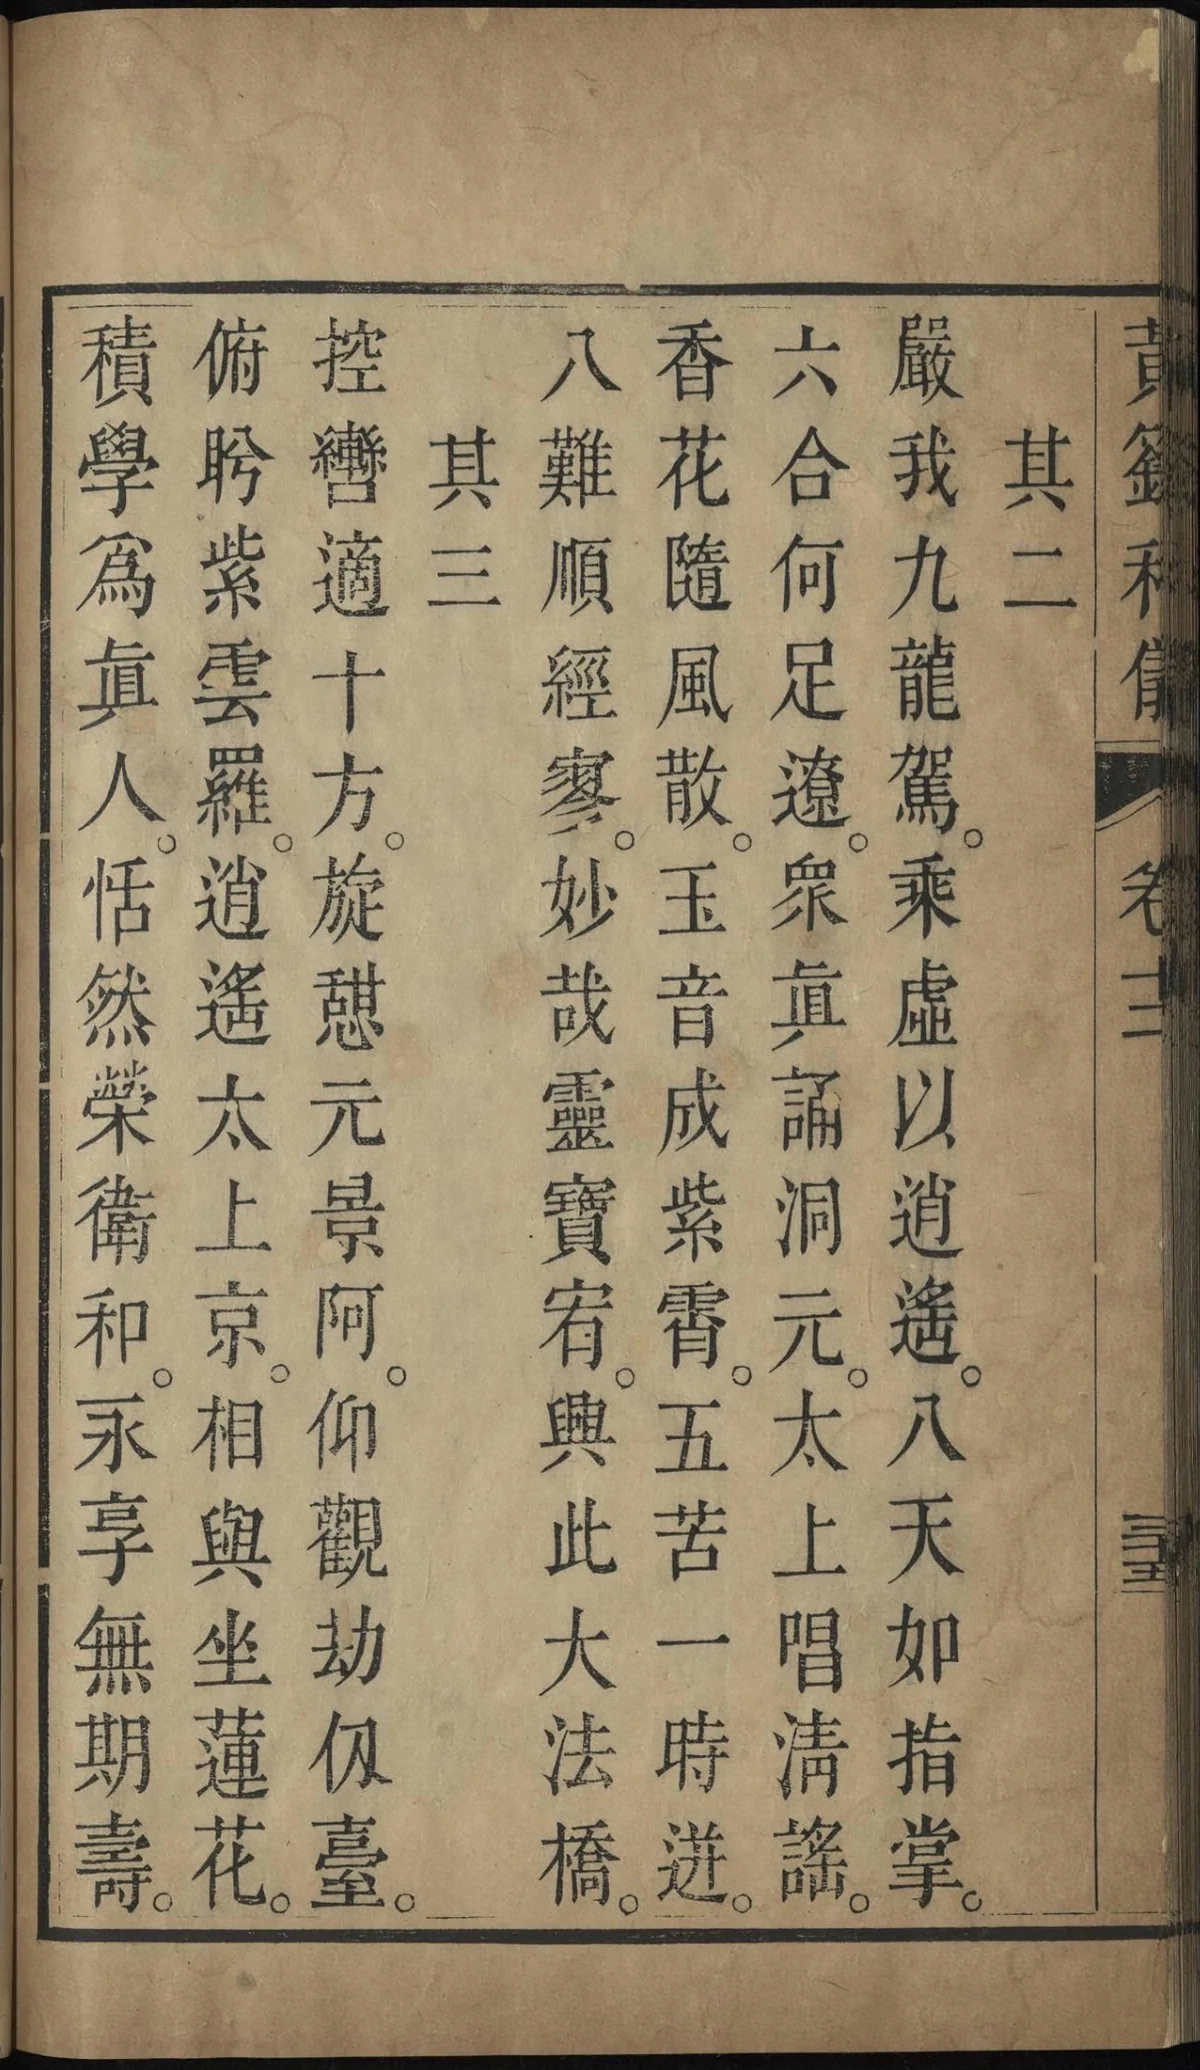 黃籙科儀 卷十二
其二
嚴我九龍駕。乘虛以逍遙。八天如指掌。
六合何足遼。衆眞誦洞元。太上唱淸謠。
香花隨風散。玉音成紫霄。五苦一時迸。
八難順經寥。妙哉靈寶宥。興此大法橋。
其三
控轡適十方。旋憇元景阿。仰觀劫仞臺。
俯盻紫雲羅。逍遙太上京。相與坐蓮花。
積學爲眞人。恬然榮衛和。永享無期壽。